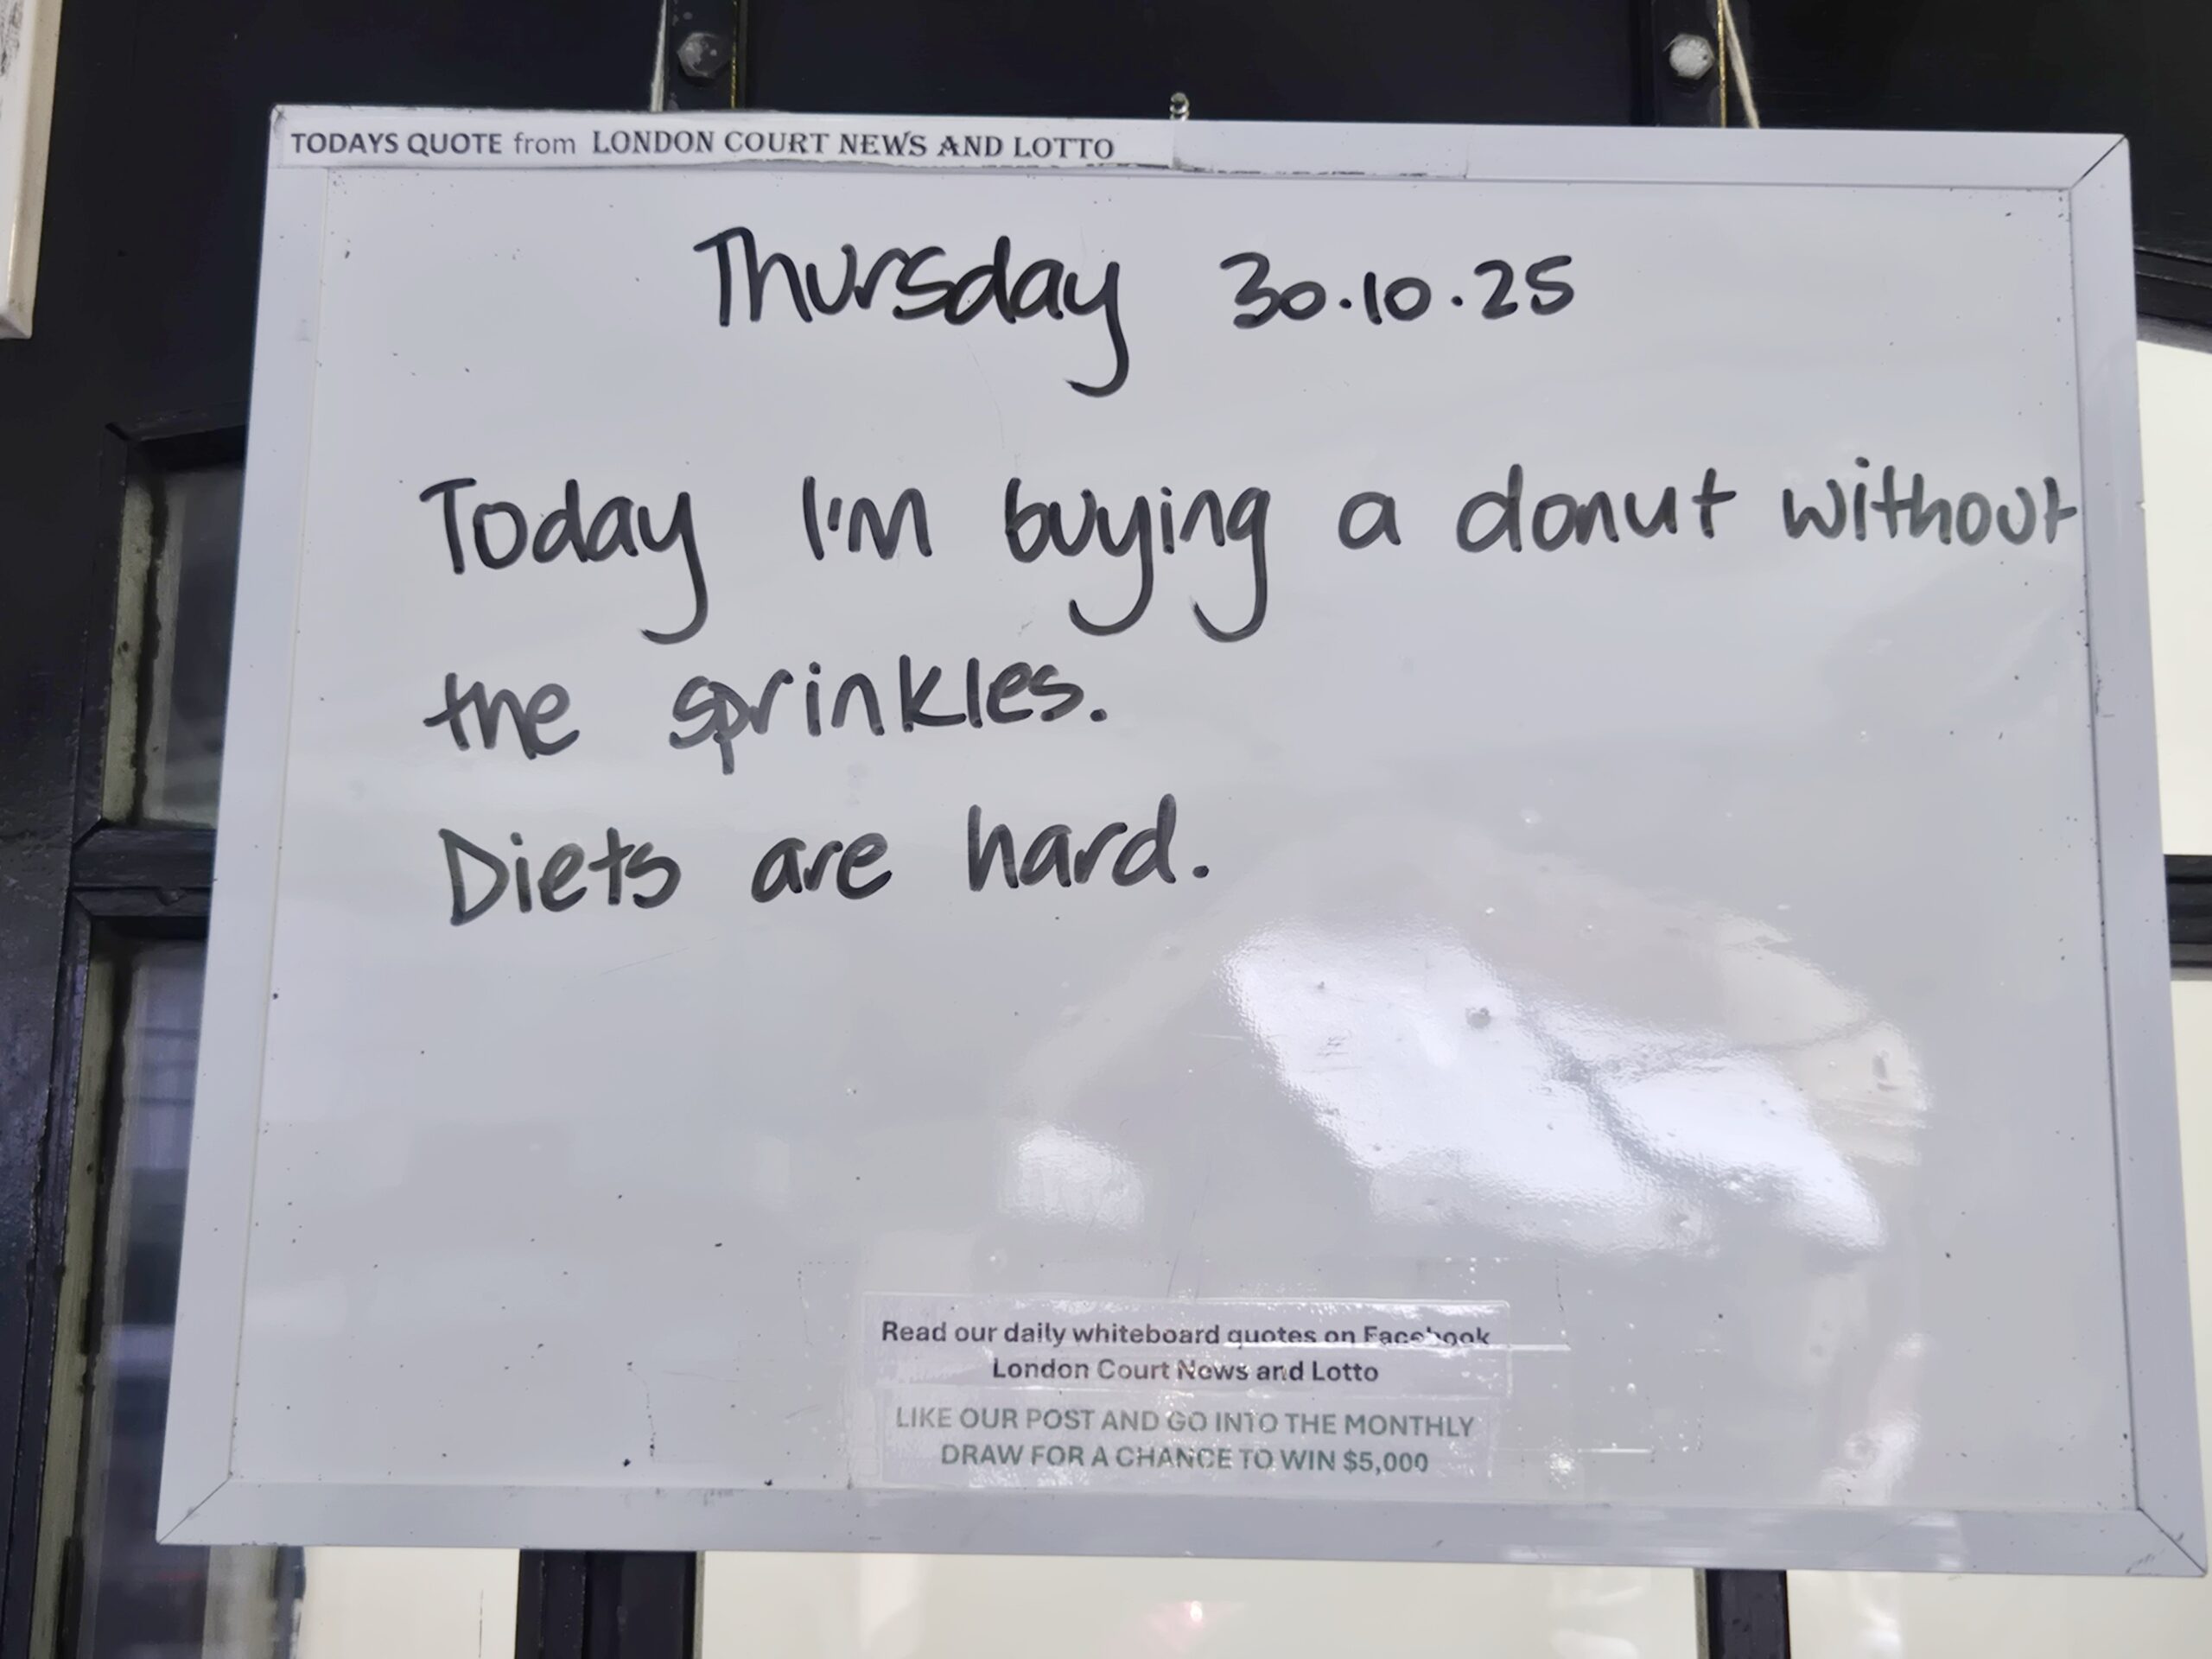 TODAYS QUOTE from LONDON COURT NEWS AND LOTTO
Thursday 30.10.25
Today I'm buying a donut without
the sprinkles.
Diets are hard.
Read our daily whiteboard quotes on Facebook
London Court News and Lotto
LIKE OUR POST AND GO INTO THE MONTHLY
DRAW FOR A CHANCE TO WIN $5,000